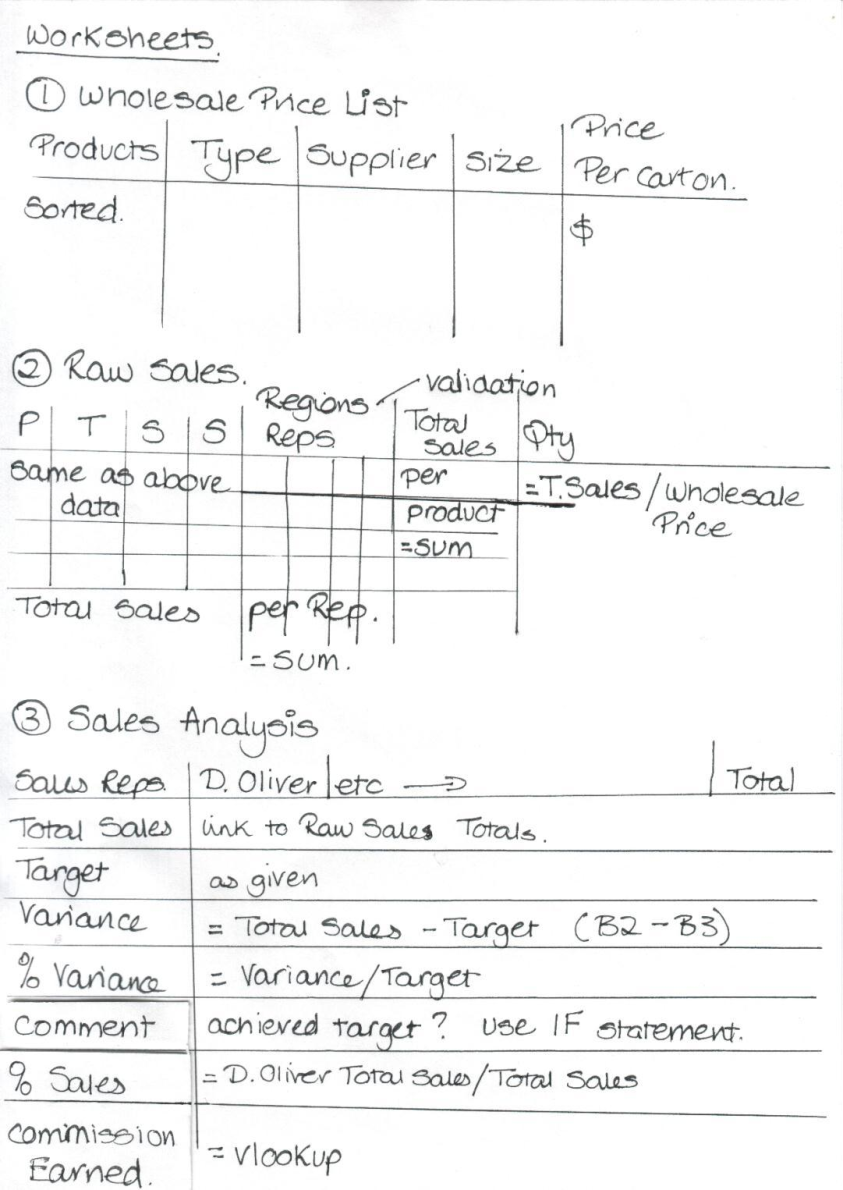 Worksheets.
① Wholesale Price List
Products | Type | Supplier | Size | Price Per Carton.
Sorted. $
② Raw Sales.
validation
P | T | S | S | Regions Reps | Total Sales | Qty
same as above data
per product
=SUM
=T.Sales / Wholesale Price
Total Sales per Rep.
= SUM.
③ Sales Analysis
Sales Reps. | D. Oliver | etc → | Total
Total Sales | link to Raw Sales Totals.
Target | as given
Variance | = Total Sales - Target (B2-B3)
% Variance | = Variance/Target
Comment | achieved target? use IF statement.
% Sales | = D. Oliver Total Sales/Total Sales
Commission Earned. | = Vlookup